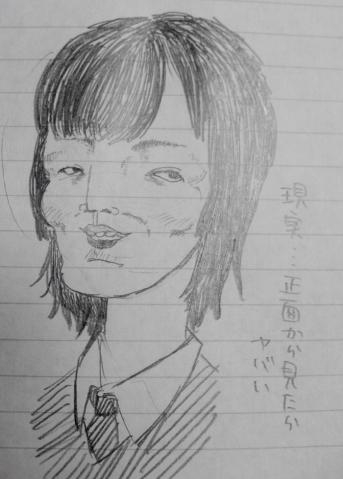 現実…正面から見たら
ヤバい